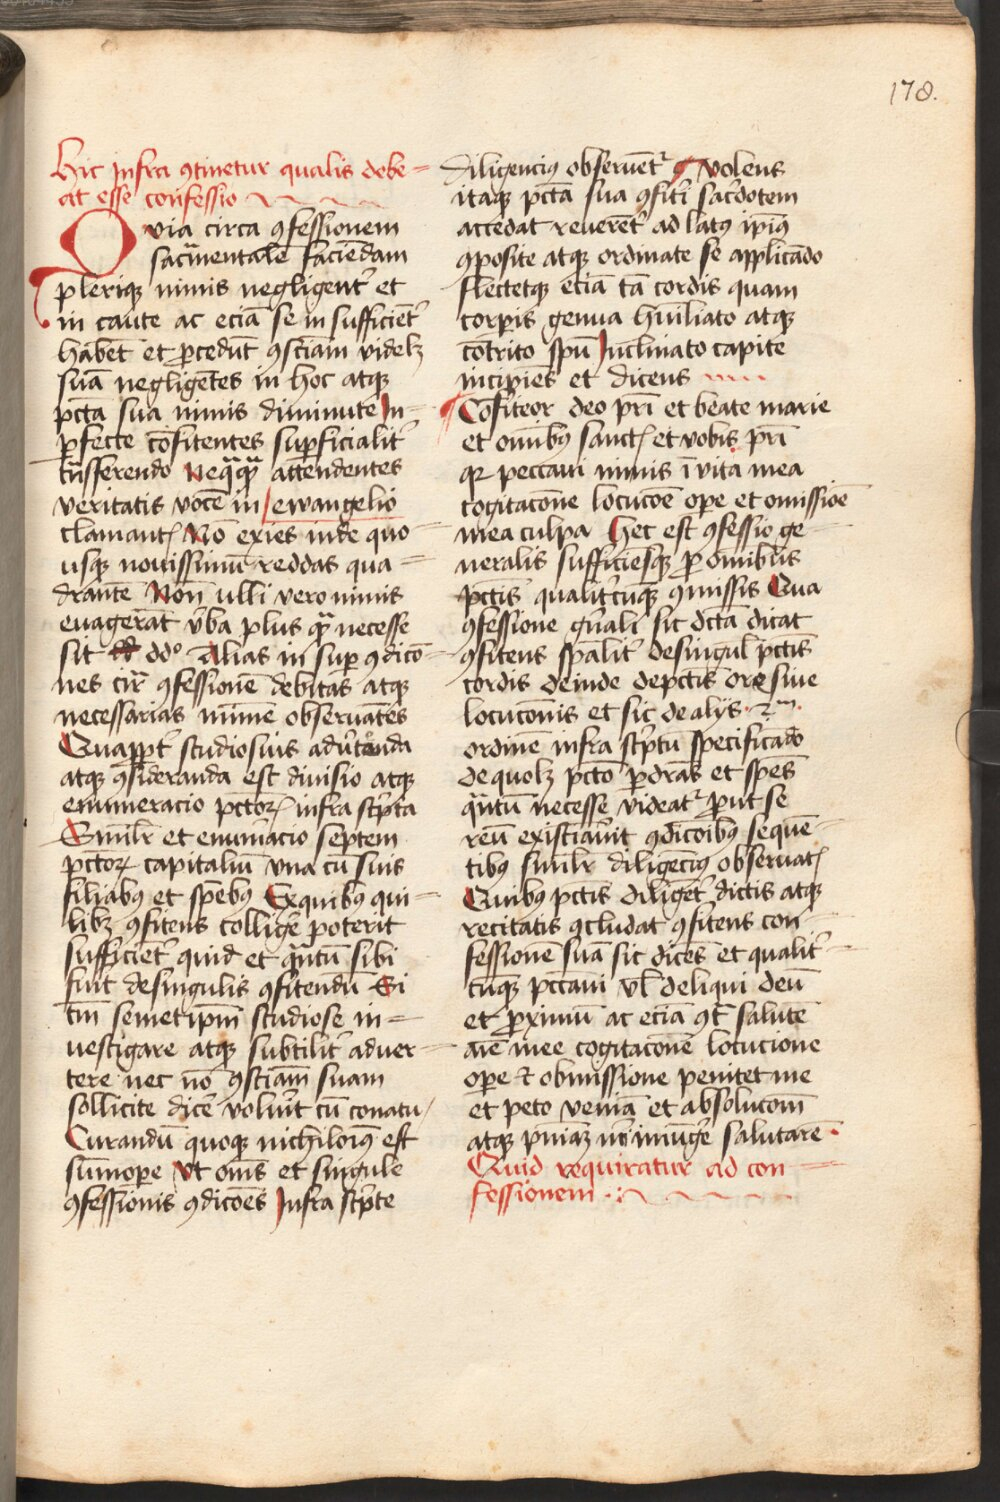 178.
Hic jnfra ꝯtinetur qualis debe=
at esse confessio
Qvia circa ꝯfessionem
sacͣmentale faciēdam
pleriqꝫ nimis negligent᷑ et
in caute ac eciā se in sufficient᷑
habēt et ꝓcedūt ꝯstiam videlꝫ
suā negligētes in hoc atqꝫ
pctā sua nimis diminute Jn=
ꝑfecte cōfitentes suꝑficialit᷑
tͣnsferendo Neqͣqͣꝫ attendentes
veritatis vocē in ewangelio
clamantꝭ Nō exies inde quo=
usqꝫ nouissimū reddas qua=
drantē Nōn ulli vero nimis
euagerāt v᷑ba plus qͣꝫ necesse
sit dd° Alias in suꝑ ꝯdico=
nes cirͣ ꝯfessionē debitas atqꝫ
necessarias minime observātes
Quaꝓpt᷑ studiosius adu᷑tenda
atqꝫ ꝯsideranda est diuisio atqꝫ
enumeracio pctorꝝ infra sc᷑pta
Simil᷑r et enum᷑acio septem
pctorꝝ capitaliū vna cū suis
filiabꝰ et spēbꝰ Exquibꝰ qui=
libꝫ ꝯfitens collig᷑e poterit
sufficient᷑ quid et qͣntū sibi
sint desingulis ꝯfitendū Si
tm̄ semetip̄m studiose in=
uestigare atqꝫ subtilit᷑ aduer=
tere nec nō ꝯstiam suam
sollicite dic᷑e volu᷑it cū conatu
Curandū quoqꝫ nichilomꝰ est
sūmope Vt om̄s et singule
ꝯfessionis ꝯdicōes Jnfra sc᷑pte
diligencius obseruent᷑ ¶ Volens
itaqꝫ pctā sua ꝯfit᷑i sac᷑dotem
accedat reuerent᷑ ad latꝰ ip̄iꝰ
ꝯposite atqꝫ ordinate se applicādo
flectetqꝫ eciā tā cordis quam
corꝑis genua hūiliato atqꝫ
cōtrito sp̄u Jnclinato capite
incipiēs et dicens
Cōfiteor deo pr̄i et beate marie
et om̄ibꝰ sanctꝭ et vobis pr̄i
qꝛ peccaui nimis ī vita mea
cogitacōne locucōe oꝑe et omissiōe
mea culpa Hec est ꝯfessio ge=
neralis sufficiēsqꝫ ꝓ om̄ibus
pctīs qualit᷑cūqꝫ ꝯmissis Qua
ꝯfessione gn̄ali sic dc̄ta dicat
ꝯfitens sp̄alit᷑ desingul̕ pctīs
cordis deinde depctīs oris siue
locucōnis et sic dealijs
ordinē infra sc᷑ptū specificādo
dequolꝫ pctō
qͣntū necesse videat᷑ ꝓut se
reū existiau᷑it ꝯdicōibꝰ sequē=
tibꝰ simil᷑r diligēciꝰ obseruatꝭ
Quibꝰ pctīs diliget᷑ dictis atqꝫ
recitatis ꝯcludat ꝯfitens con=
fessionē suā sic dicēs et qualit᷑=
cūqꝫ pctāui vl̕ deliqui deū
et ꝓximū ac eciā ꝯt᷑ salutē
aīe mee cogitacōne locucione
oꝑe ⁊ obmissione penitet me
et peto veniā et absolucōm
atqꝫ pn̄iaꝫ m̄ iniūg᷑e salutare
Quid requiratur ad con=
fessionem